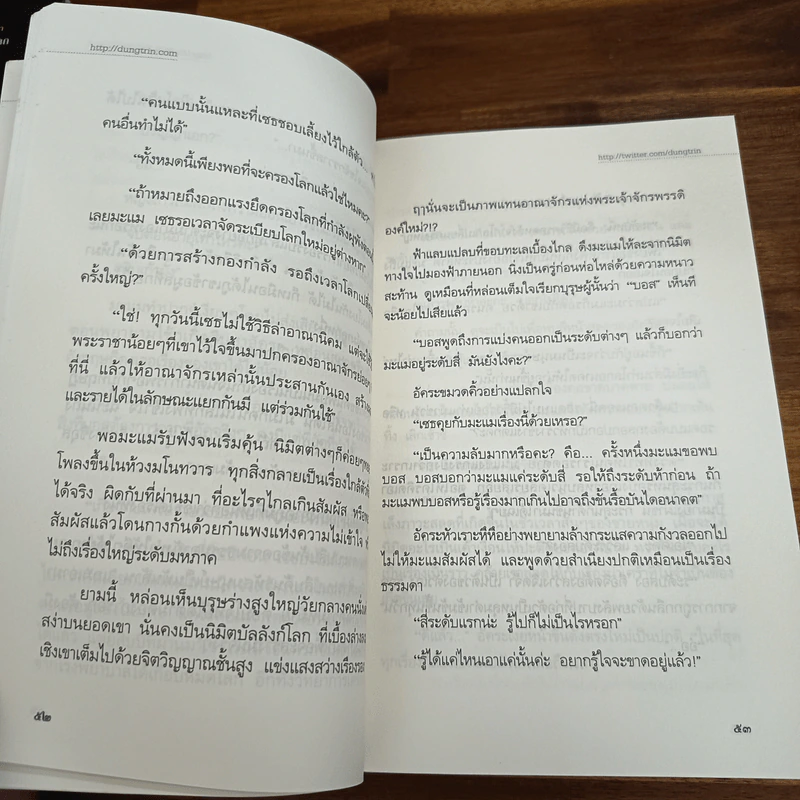 http://dungtrin.com
“คนแบบนั้นแหละที่เซธชอบเลี้ยงไว้ใกล้ตัว...
คนอื่นทำไม่ได้”
“ทั้งหมดนี้เพียงพอที่จะครองโลกแล้วใช่ไหมคะ?”
“ถ้าหมายถึงออกแรงยึดครองโลกที่กำลังผุพัง
เลยมะแม เซธรอเวลาจัดระเบียบโลกใหม่อยู่ต่างหาก”
“ด้วยการสร้างกองกำลัง รอถึงเวลาโลก
ครั้งใหญ่?”
“ใช่! ทุกวันนี้เซธไม่ใช้วิธีล่าอาณานิคม แต่จะ
พระราชาน้อยๆที่เขาไว้ใจขึ้นมาปกครองอาณาจักร
ที่นี่ แล้วให้อาณาจักรเหล่านั้นประสานกันเอง
และรายได้ในลักษณะแยกกันมี แต่ร่วมกันใช้”
พอมะแมรับฟังจนเริ่มคุ้น นิมิตต่างๆก็ค่อยๆ
โพลงขึ้นในห้วงมโนทวาร ทุกสิ่งกลายเป็นเรื่องใกล้ตัว
ได้จริง ผิดกับที่ผ่านมา ที่อะไรๆไกลเกินสัมผัส
สัมผัสแล้วโดนกางกั้นด้วยกำแพงแห่งความไม่เข้าใจ
ไม่ถึงเรื่องใหญ่ระดับมหภาค
ยามนี้ หล่อนเห็นบุรุษร่างสูงใหญ่วัยกลางคน
สง่าบนยอดเขา นั่นคงเป็นนิมิตบัลลังก์โลก ที่เบื้องล่าง
เชิงเขาเต็มไปด้วยจิตวิญญาณชั้นสูง แข่งแสงสว่างเรืองรอง
๕๒
http://twitter.com/dungtrin
ฤๅนั่นจะเป็นภาพแทนอาณาจักรแห่งพระเจ้าจักรพรรดิ
องค์ใหม่?!?
ฟ้าแลบแปลบที่ขอบทะเลเบื้องไกล ดึงมะแมให้ละจากนิมิต
ทางใจไปมองฟ้าภายนอก นิ่งเป็นครู่ก่อนห่อไหล่ด้วยความหนาว
สะท้าน ดูเหมือนที่หล่อนเต็มใจเรียกบุรุษผู้นั้นว่า “บอส” เห็นที
จะน้อยไปเสียแล้ว
“บอสพูดถึงการแบ่งคนออกเป็นระดับต่างๆ แล้วก็บอกว่า
มะแมอยู่ระดับสี่ มันยังไงคะ?”
อัคระขมวดคิ้วอย่างแปลกใจ
“เซธคุยกับมะแมเรื่องนี้ด้วยเหรอ?”
“เป็นความลับมากหรือคะ? คือ... ครั้งหนึ่งมะแมขอพบ
บอส บอสบอกว่ามะแมแค่ระดับสี่ รอให้ถึงระดับห้าก่อน ถ้า
มะแมพบบอสหรือรู้เรื่องมากเกินไปอาจถึงขั้นรื้อบันไดอนาคต”
อัคระหัวเราะหึหึอย่างพยายามล้างกระแสความกังวลออกไป
ไม่ให้มะแมสัมผัสได้ และพูดด้วยสำเนียงปกติเหมือนเป็นเรื่อง
ธรรมดา
“สี่ระดับแรกน่ะ รู้ไปก็ไม่เป็นไรหรอก”
“รู้ได้แค่ไหนเอาแค่นั้นค่ะ อยากรู้ใจจะขาดอยู่แล้ว!”
๕๓